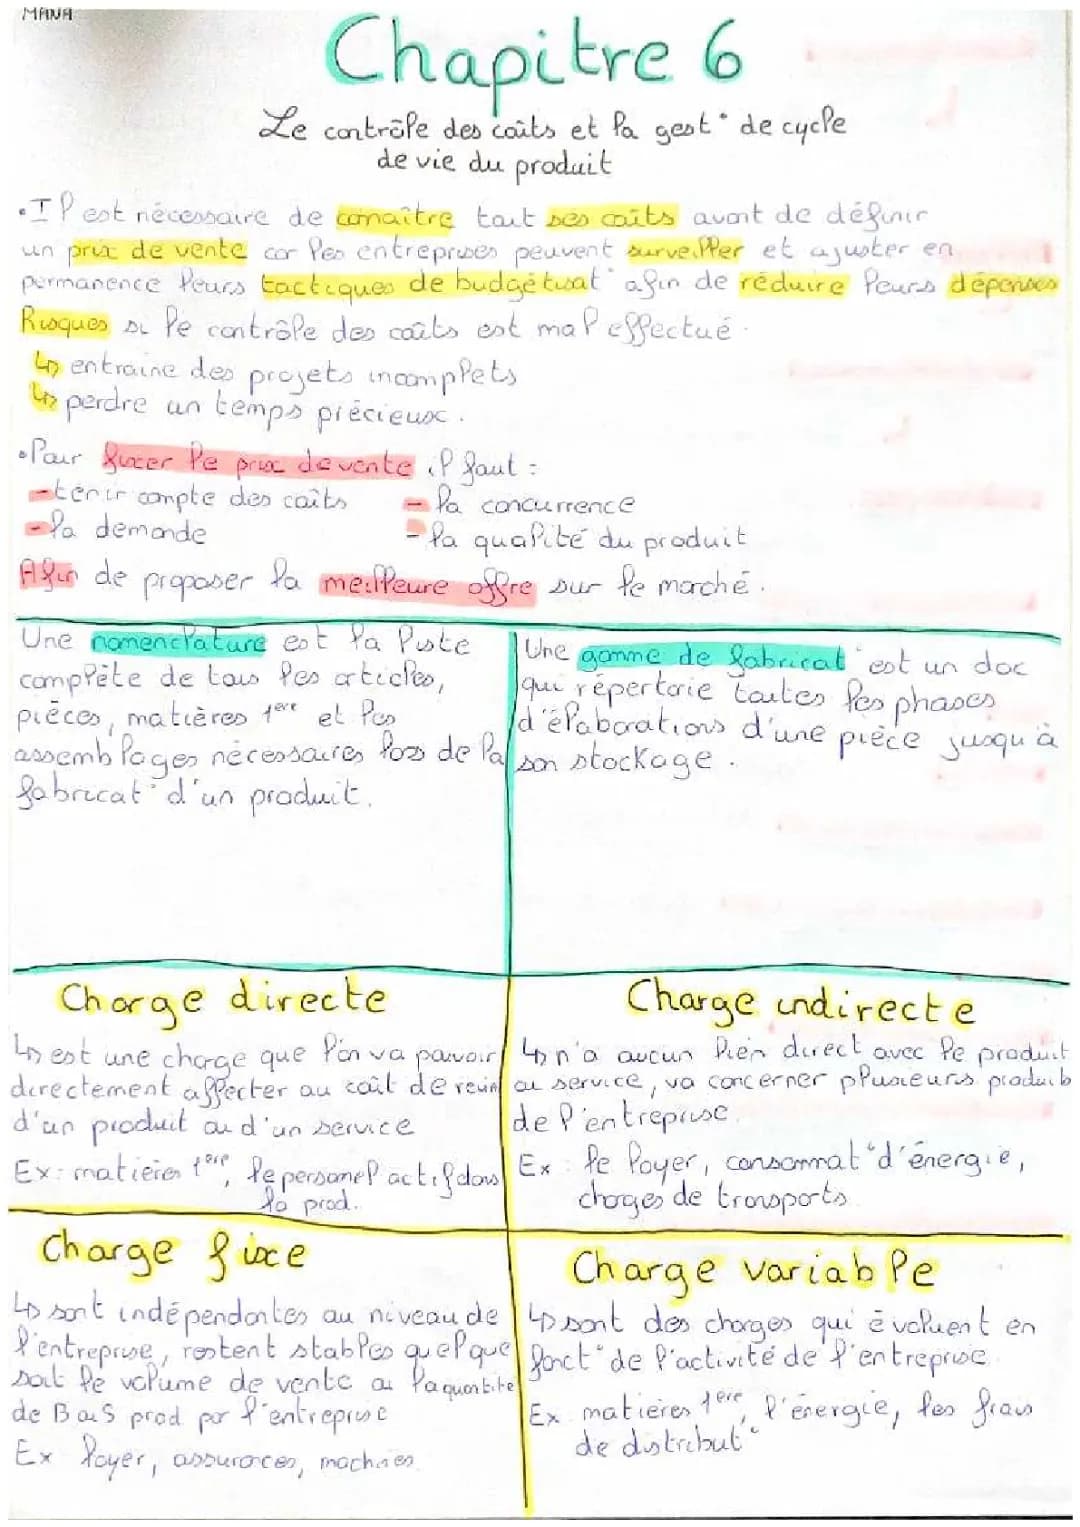 MANA
Chapitre 6
Le contrôle des coûts et la gest° de cycle
de vie du produit
• Il est nécessaire de connaître tout ses coûts avant de définir
un prix de vente car les entreprises peuvent surveiller et ajuster en
permanence leurs tactiques de budgétisat° afin de réduire leurs dépenses
Risques si le contrôle des coûts est mal effectué.
↳ entraine des projets incomplets
↳ perdre un temps précieux.
• Pour fixer le prix de vente il faut :
- tenir compte des coûts
- la concurrence
- la demande
- la qualité du produit
Afin de proposer la meilleure offre sur le marché.
Une nomenclature est la liste
complète de tous les articles,
pièces, matières 1ère et les
assemblages nécessaires lors de la
fabricat° d'un produit.
Une gamme de fabricat° est un doc
qui répertorie toutes les phases
d'élaborations d'une pièce jusqu'à
son stockage.
Charge directe
↳ est une charge que l'on va pouvoir
directement affecter au coût de revin
d'un produit ou d'un service
Ex: matières 1ère, le personel actif dans
la prod.
Charge indirecte
↳ n'a aucun lien direct avec le produit
ou service, va concerner plusieurs produits
de l'entreprise.
Ex : le loyer, consommat° d'énergie,
charges de transports
Charge fixe
↳ sont indépendantes au niveau de
l'entreprise, restent stables quelque
soit le volume de vente ou la quantité
de B ou S prod par l'entreprise
Ex loyer, assurances, machines.
Charge variable
↳ sont des charges qui évoluent en
fonct° de l'activité de l'entreprise.
Ex matières 1ère, l'énergie, les frais
de distribut°